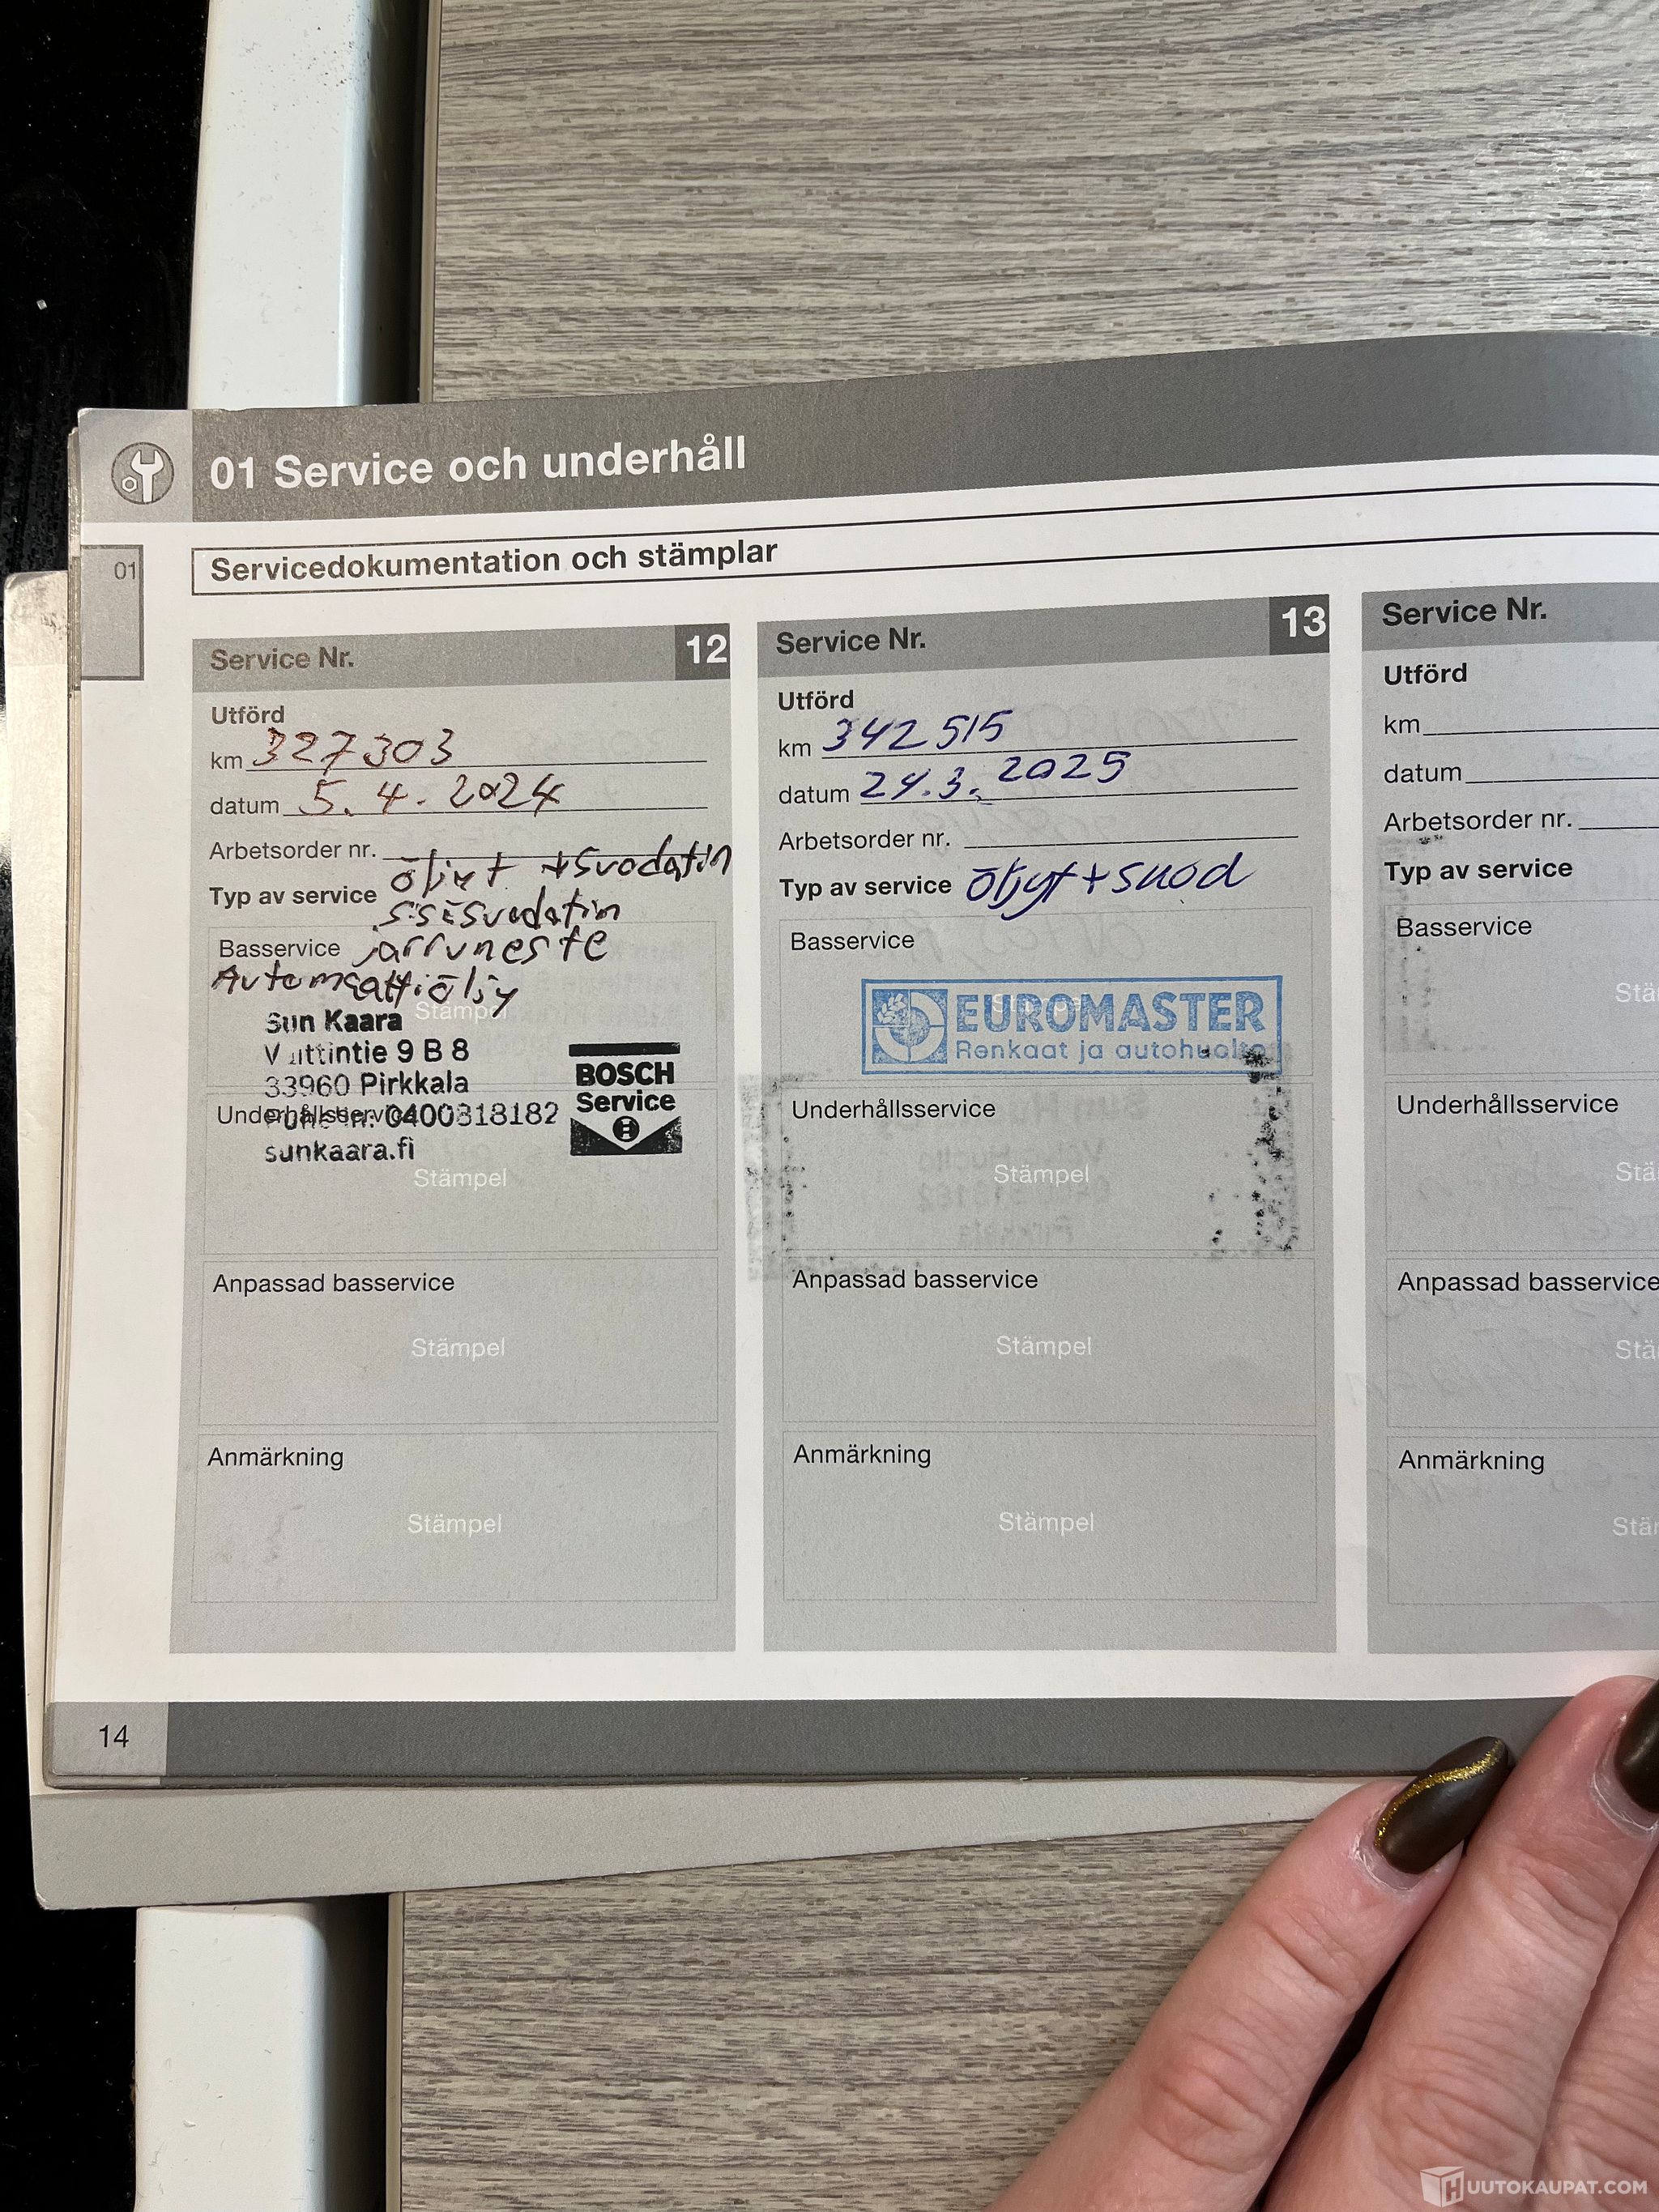 01 Service och underhåll
01
Servicedokumentation och stämplar
Service Nr. 12
Utförd
km 327303
datum 5. 4. 2024
Arbetsorder nr.
Typ av service öljyt + suodatin
sissuodatin
Basservice jarruneste
Automaattiöljy
Stämpel
Sun Kaara
9 B 8
33960 Pirkkala
Underhållsservice
0400818182
sunkaara.fi
BOSCH
Service
Stämpel
Anpassad basservice
Stämpel
Anmärkning
Stämpel
Service Nr. 13
Utförd
km 342515
datum 24.3. 2025
Arbetsorder nr.
Typ av service öljyt + suod
Basservice
Stämpel
EUROMASTER
Renkaat ja autohuolto
Underhållsservice
Stämpel
Anpassad basservice
Stämpel
Anmärkning
Stämpel
Service Nr.
Utförd
km
datum
Arbetsorder nr.
Typ av service
Basservice
Stä
Underhållsservice
Stä
Anpassad basservice
Stä
Anmärkning
Stä
14
HUUTOKAUPAT.COM